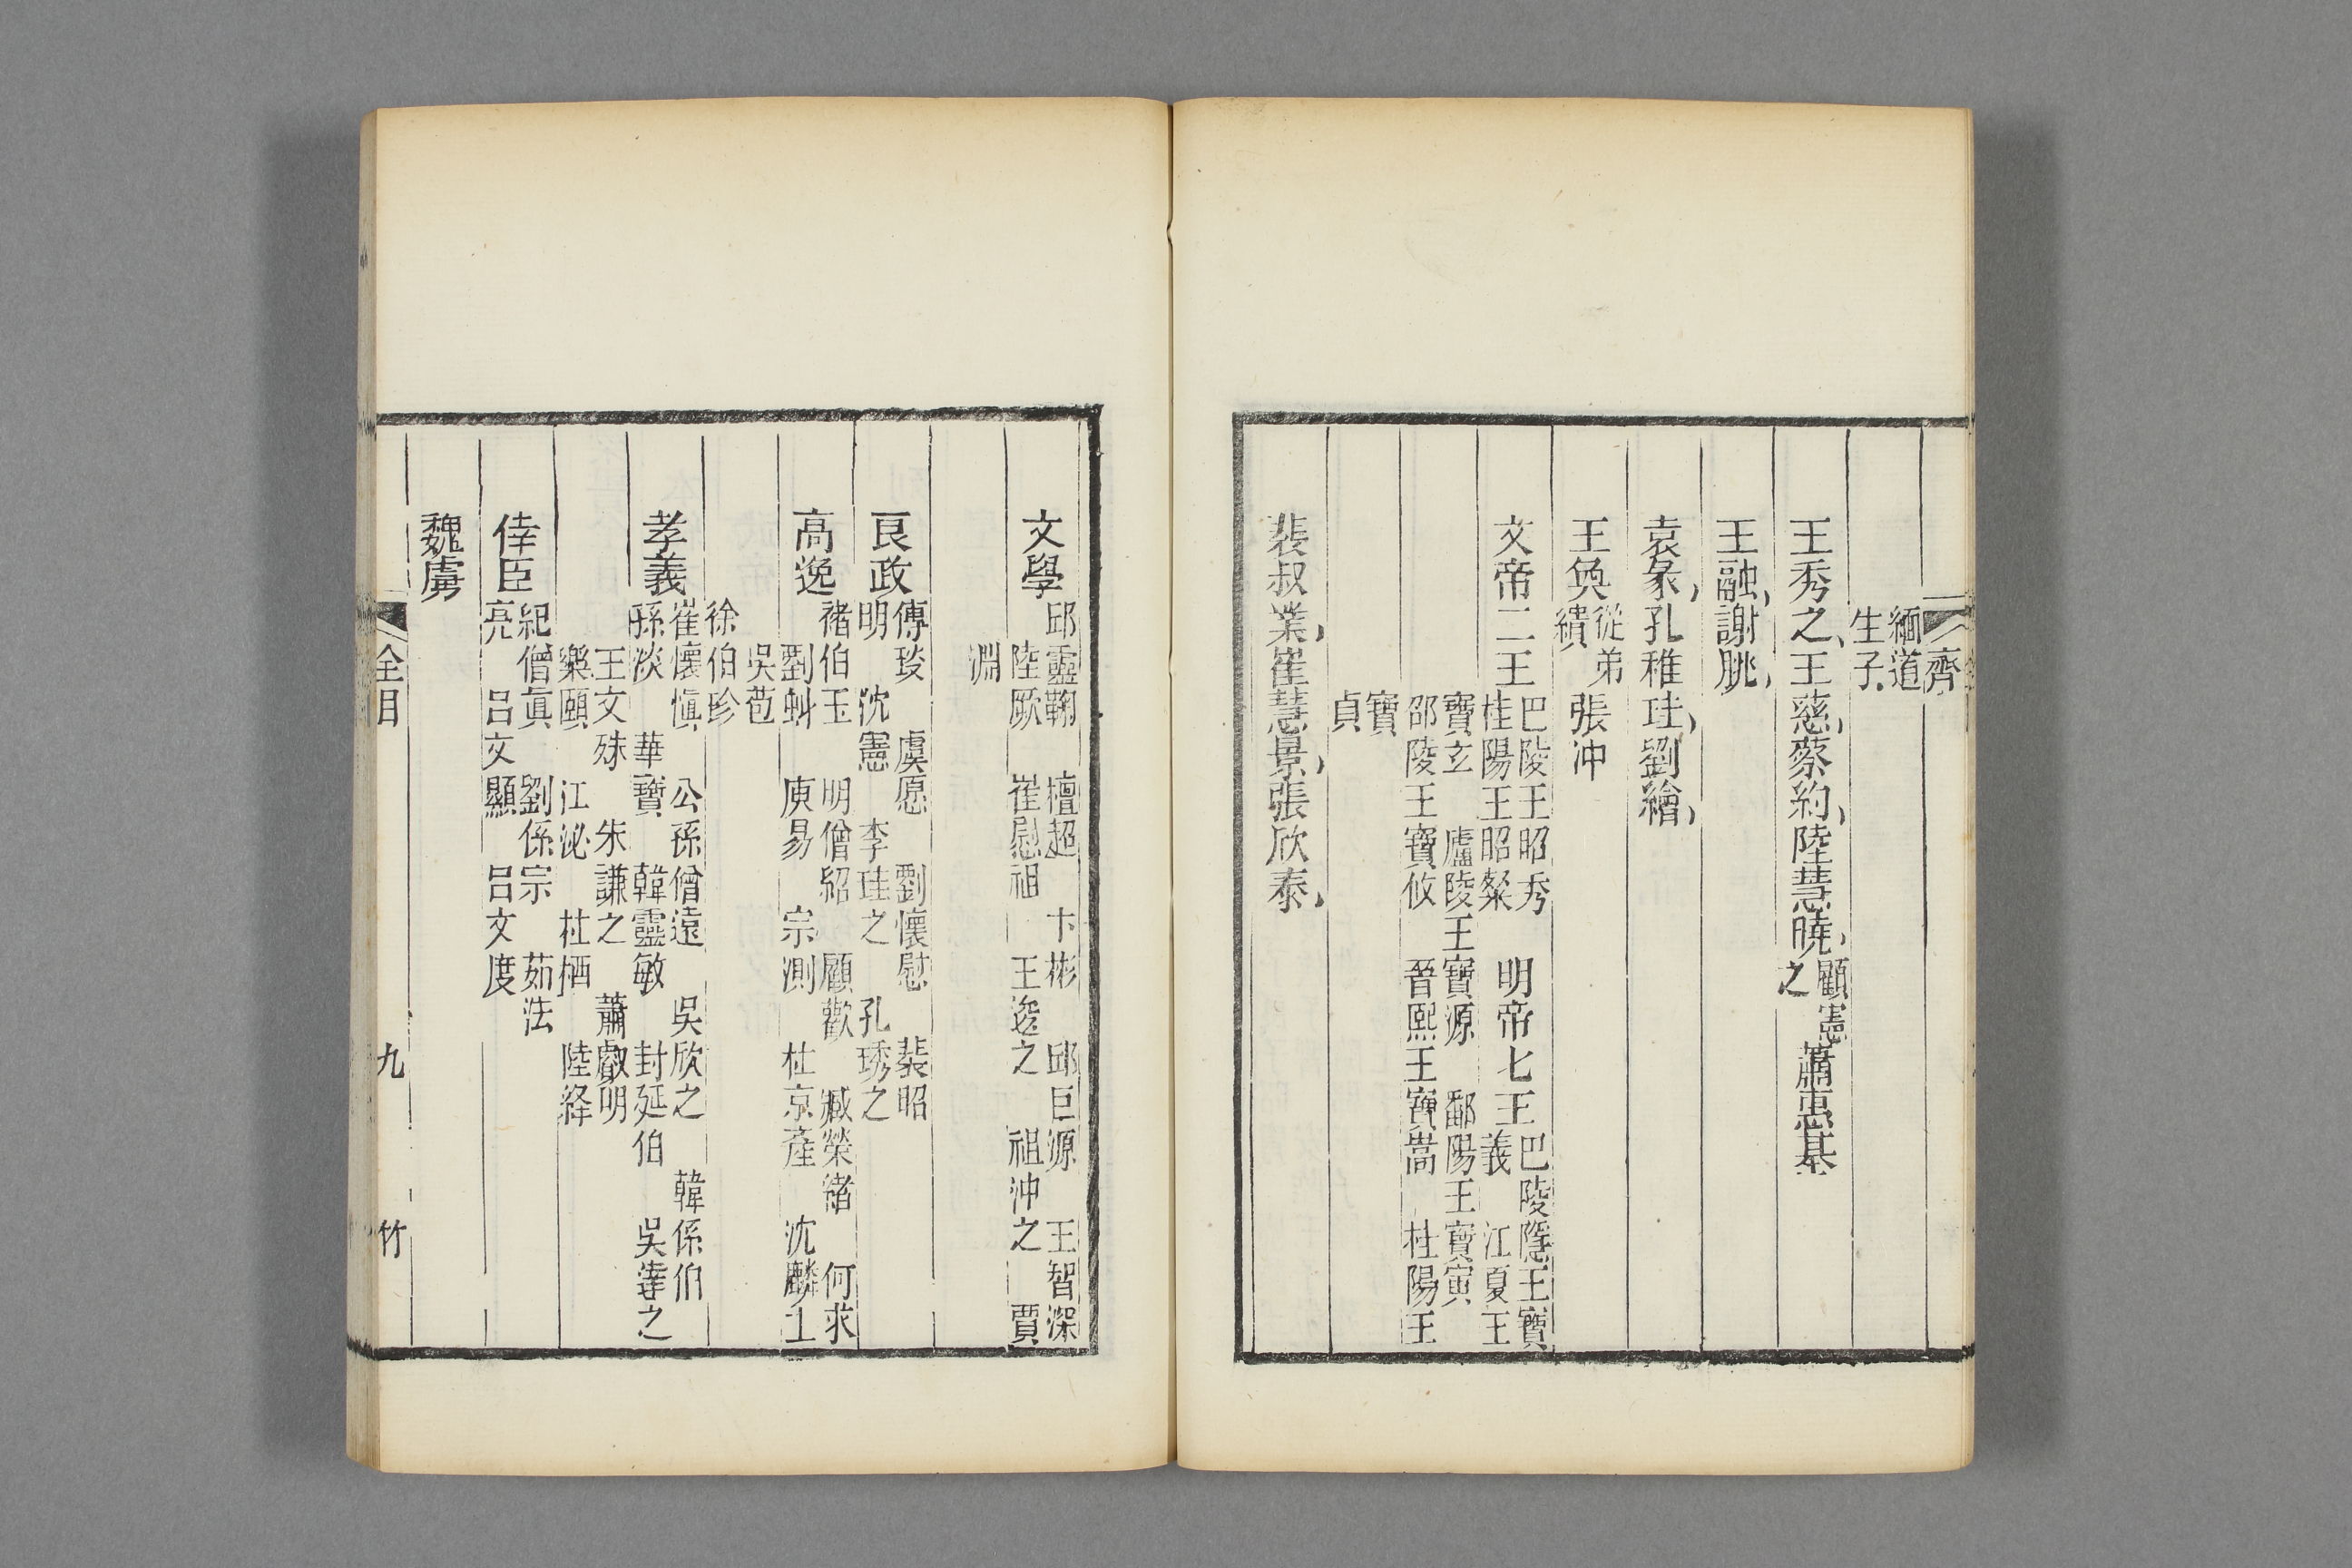 齊
緬道
生子
王秀之王慈蔡約陸慧曉顧憲之蕭惠基
王融謝朓
袁彖孔稚珪劉繪
王奐從弟繢張冲
文帝二王巴陵王昭秀 桂陽王昭粲 明帝七王巴陵隱王寶義 江夏王
寶玄 廬陵王寶源 鄱陽王寶寅
邵陵王寶攸 晉熙王寶嵩 桂陽王
寶
貞
裴叔業崔慧景張欣泰
文學邱靈鞠 檀超 卞彬 邱巨源 王智深
陸厥 崔慰祖 王逡之 祖沖之 賈
淵
良政傅琰 虞愿 劉懷慰 裴昭
明 沈憲 李珪之 孔琇之
高逸褚伯玉 明僧紹 顧歡 臧榮緒 何求
劉虯 庾易 宗測 杜京產 沈麟士
吳苞
徐伯珍
孝義崔懷愼 公孫僧遠 吳欣之 韓係伯
孫淡 華寶 韓靈敏 封延伯 吳達之
王文殊 朱謙之 蕭叡明
樂頤 江泌 杜栖 陸絳
倖臣紀僧眞 劉係宗 茹法
亮 呂文顯 呂文度
魏虜
全目
九
竹